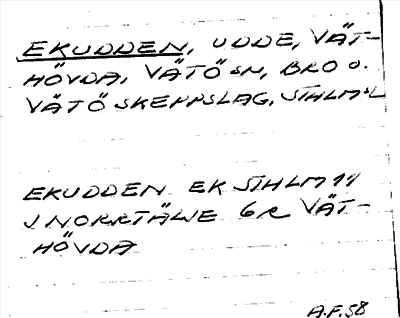 EKUDDEN, UDDE, VÄT-
HÖVDA, VÄTÖ SN, BRO O.
VÄTÖ SKEPPSLAG, STHLM:L
EKUDDEN EK STHLM 11
J NORRTÄLJE 6R VÄT-
HÖVDA
A.F. 58